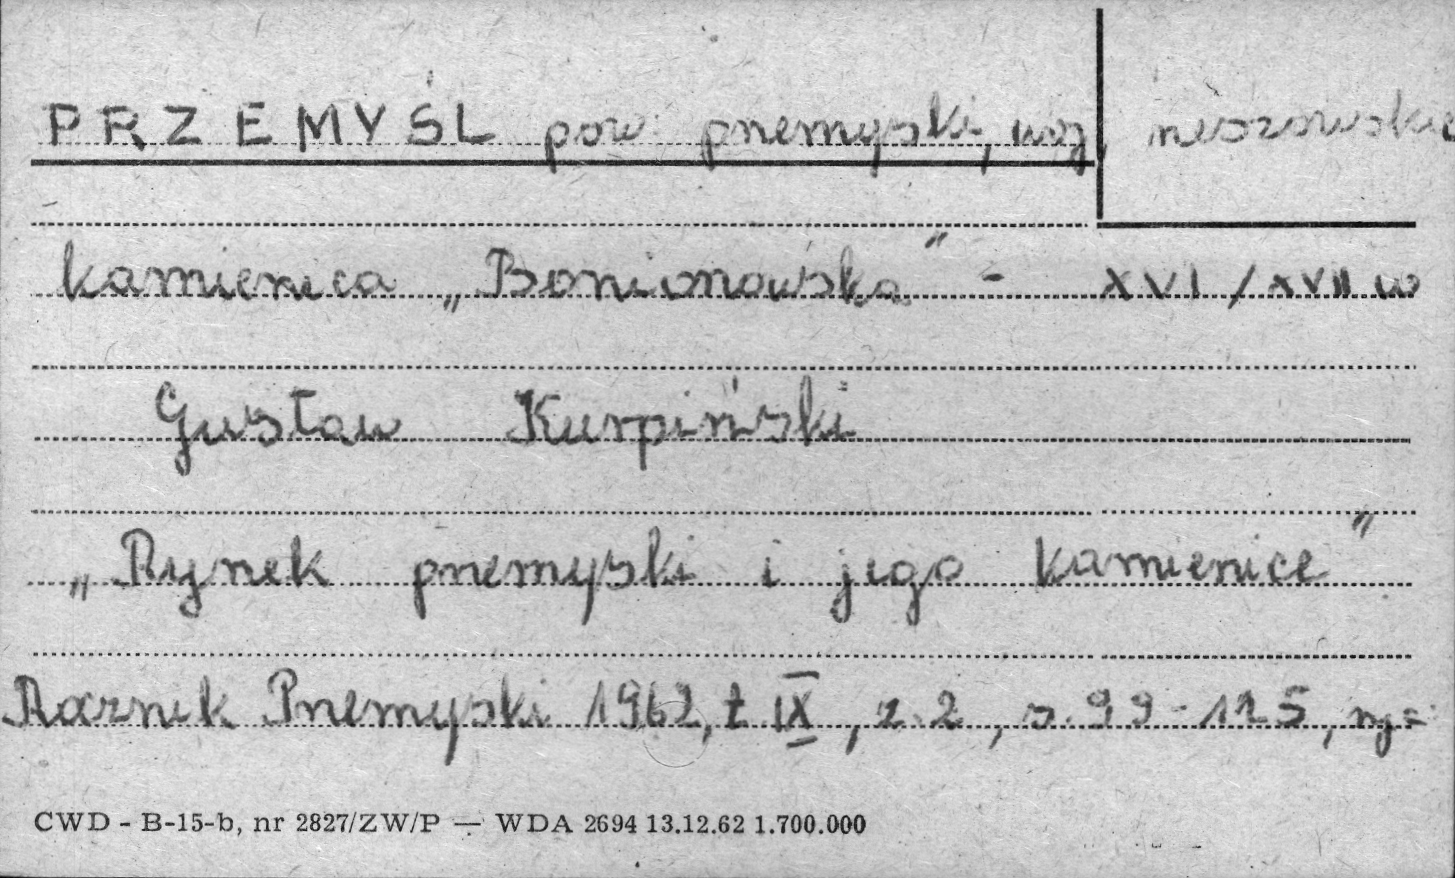 PRZEMYŚL pow. przemyski, woj. rzeszowskie
kamienica „Bonionowska" - XVI/XVII w
Gustaw Kurpiński
„Rynek przemyski i jego kamienice"
Rocznik Przemyski 1962, t IX, z. 2, s. 99-125,
CWD - B-15-b, nr 2827/ZW/P — WDA 2694 13.12.62 1.700.000